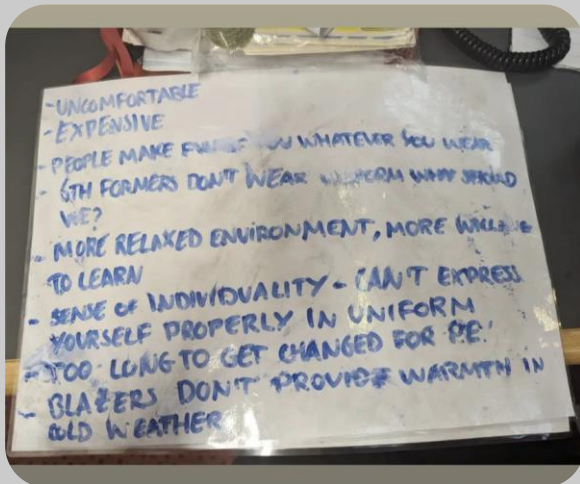 - UNCOMFORTABLE
- EXPENSIVE
- PEOPLE MAKE FUN OF YOU WHATEVER YOU WEAR
- 6TH FORMERS DON'T WEAR UNIFORM WHY SHOULD
WE?
- MORE RELAXED ENVIRONMENT, MORE WILLING
TO LEARN
- SENSE OF INDIVIDUALITY - CAN'T EXPRESS
YOURSELF PROPERLY IN UNIFORM
- TOO LONG TO GET CHANGED FOR P.E.
- BLAZERS DON'T PROVIDE WARMTH IN
COLD WEATHER